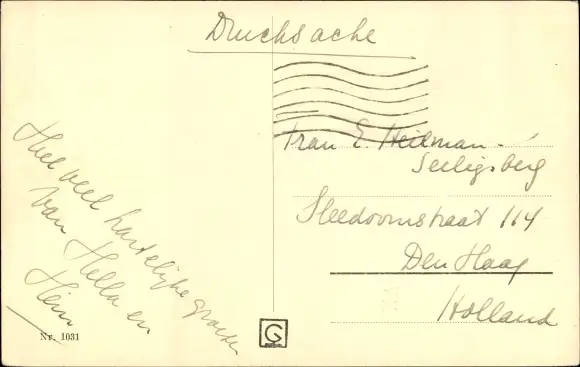 Drucksache
Heel veel hartelijke groeten
van Hella en
Hein
Frau E. Heilman-
Seeligsberg
114
Den Haag
Holland
Nr. 1031
G